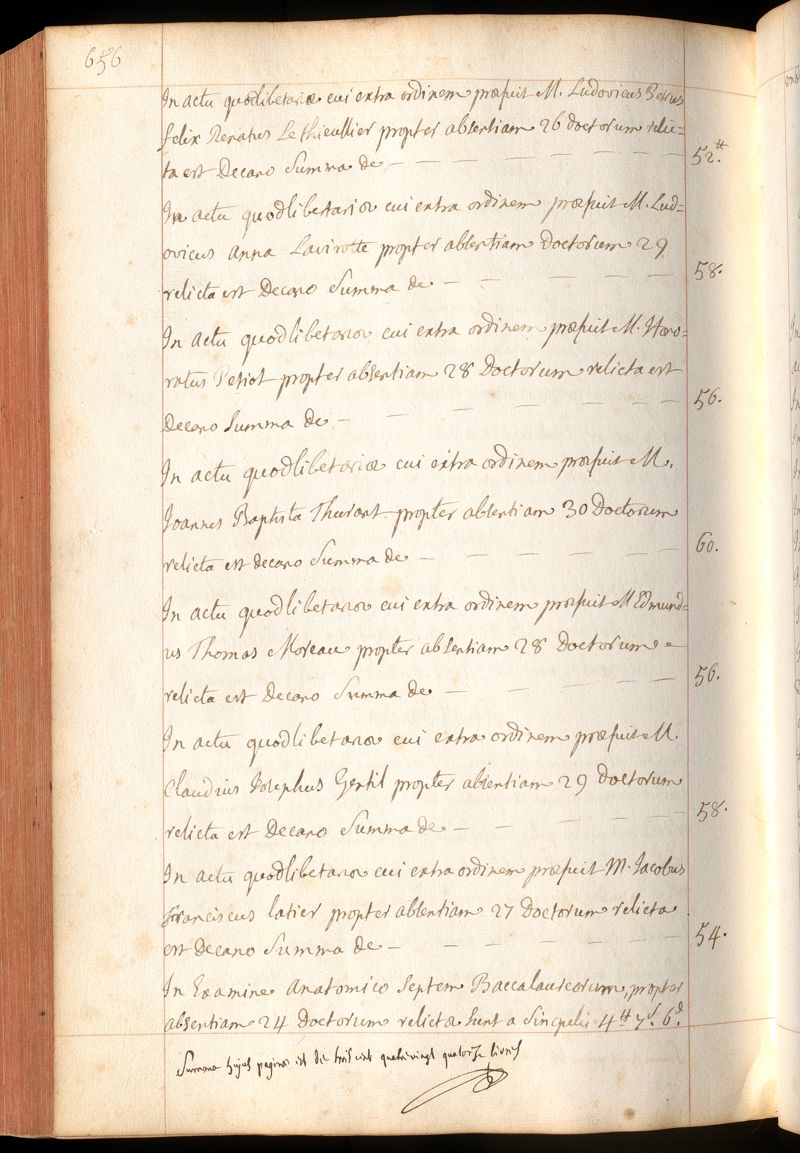 656
In actu quodlibetariæ cui extra ordinem præfuit M. Ludovicus Petrus
felix Renatus Le thieullier propter absentiam 26 doctorum relic=
ta est Decano Summa de — — — — — — — 52.tt
In actu quodlibertariæ cui extra ordinem præfuit M. Lud=
ovicus Anna Lavirotte propter absentiam Doctorum 29
relicta est Decano Summa de — — — — — — 58.
In actu quodlibetariæ cui extra ordinem præfuit M. Hono=
ratus Petiot propter absentiam 28 Doctorum relicta est
Decano Summa de — — — — — — — 56.
In actu quodlibetariæ cui extra ordinem præfuit M.
Joannes Baptista Thurant propter absentiam 30 Doctorum
relicta est decano Summa de — — — — — — 60.
In actu quodlibetariæ cui extra ordinem præfuit M Edmund=
us Thomas Moreau propter absentiam 28 Doctorum
relicta est Decano Summa de — — — — — 56.
In actu quodlibetariæ cui extra ordinem præfuit M.
Claudius Josephus Gentil propter absentiam 29 Doctorum
relicta est Decano Summa de — — — — — 58.
In actu quodlibetariæ cui extra ordinem præfuit M. Jacobus
franciscus latier propter absentiam 27 Doctorum relicta
est Decano Summa de — — — — — — 54.
In Examine Anatomico Septem Baccalaureorum, propter
absentiam 24 Doctorum relictæ Sunt a Singulis 4tt 7s. 6d.
Summa hujus paginæ est de trois cent quatrevingt quatorze livres